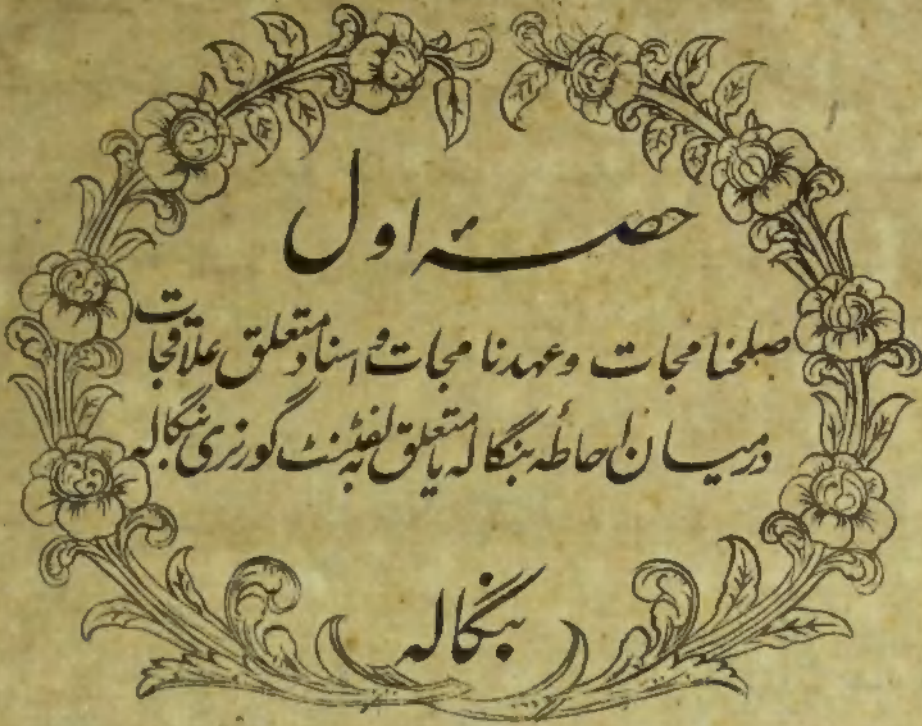 حصۂ اول
صلحنامجات وعہدنامجات و اسناد متعلق علاقجات
درمیان احاطۂ بنگالہ یا متعلق بہ لفٹننٹ گورنری بنگالہ
بنگالہ